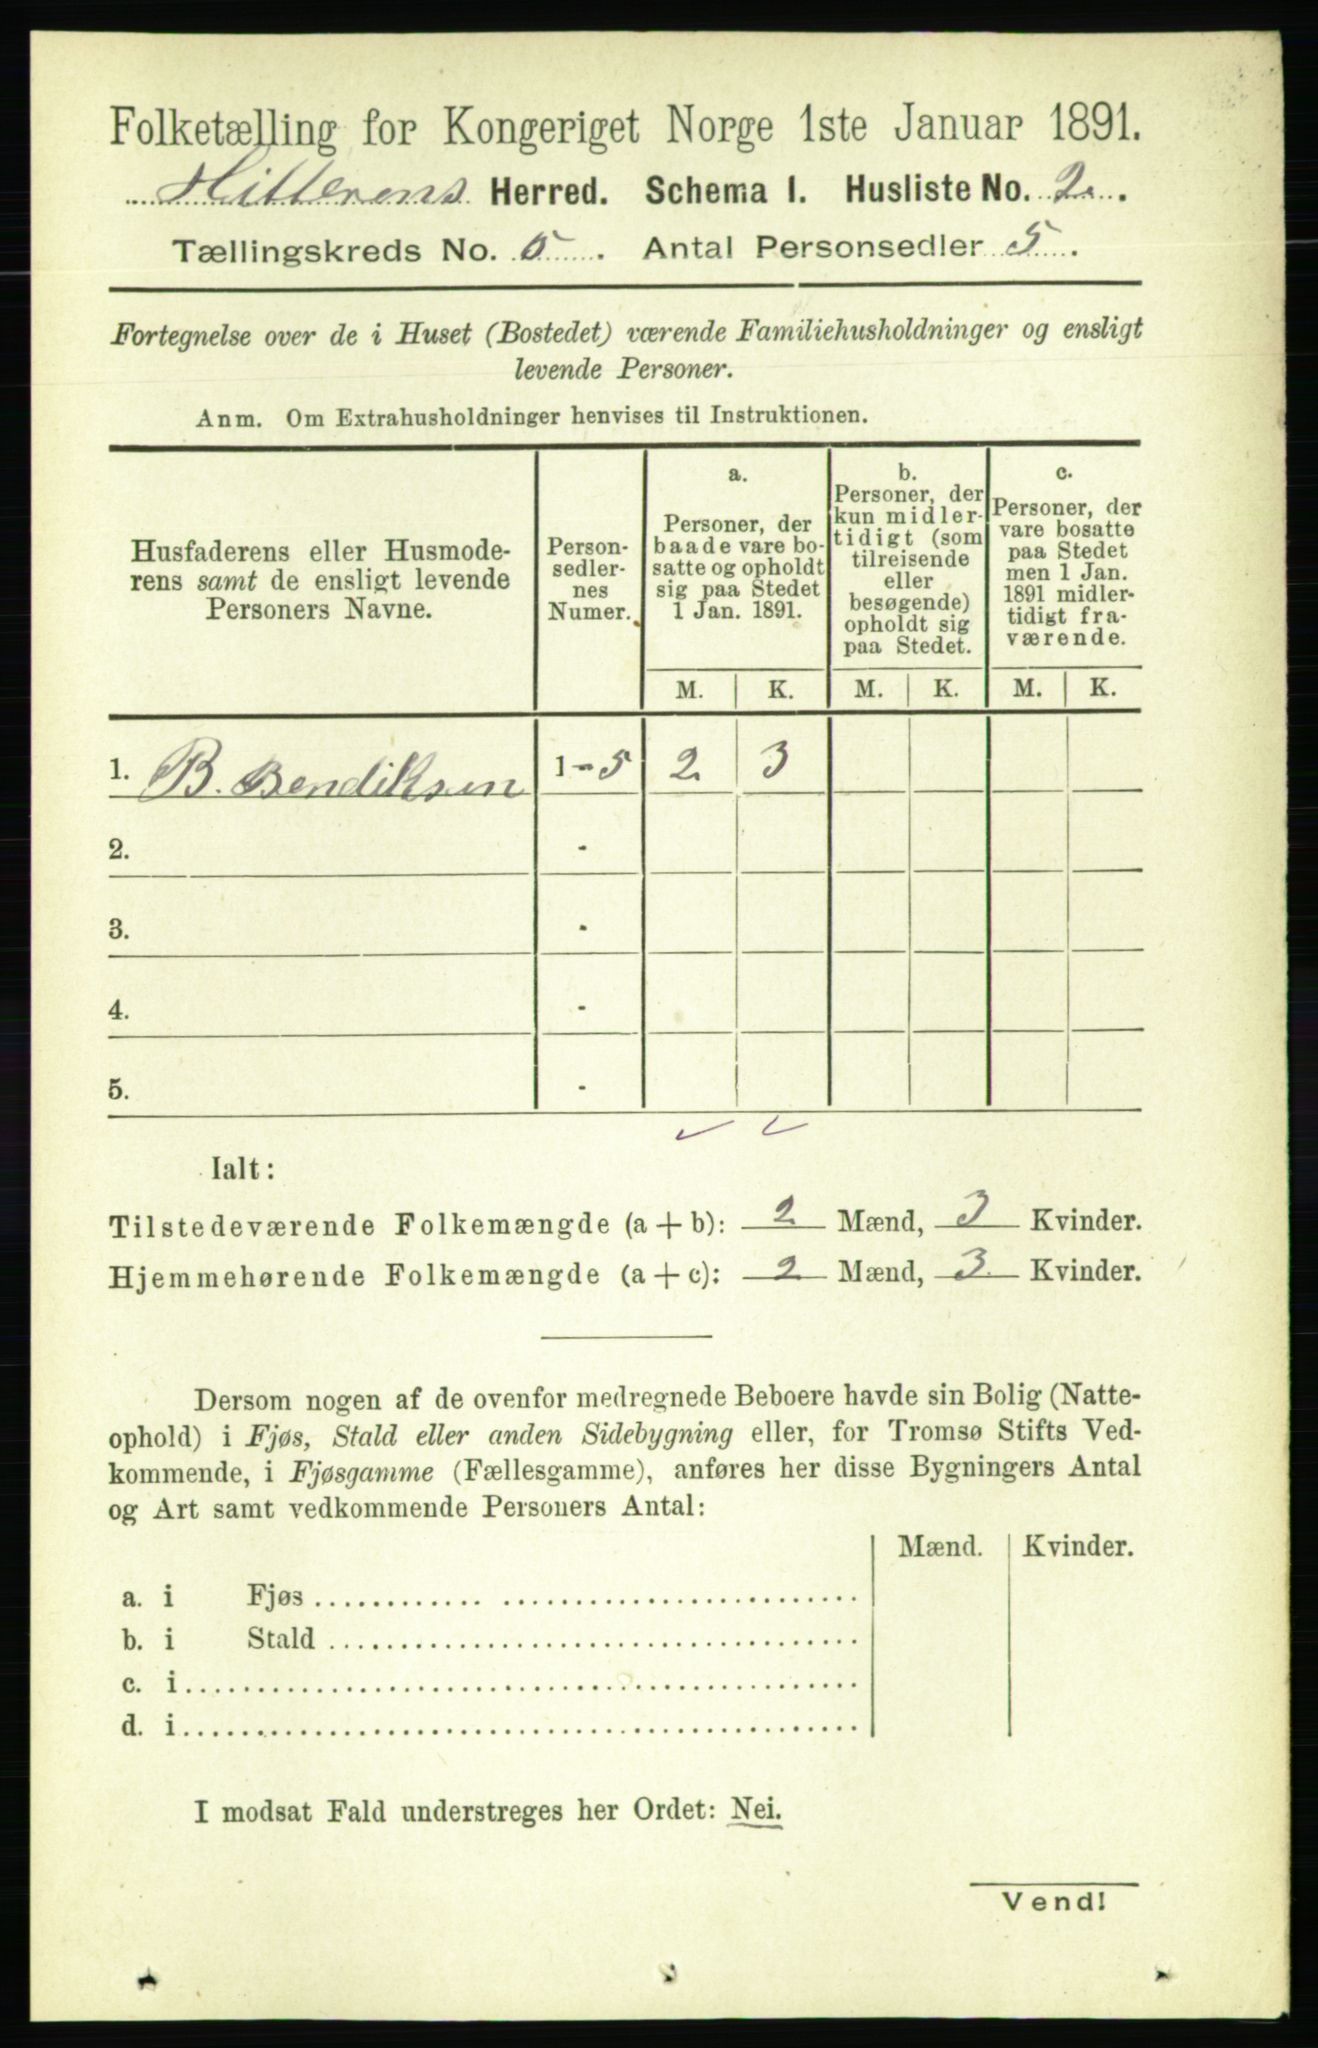 Folketælling for Kongeriget Norge 1ste Januar 1891.
Hitterens Herred. Schema I. Husliste No. 2.
Tællingskreds No. 5. Antal Personsedler 5.
Fortegnelse over de i Huset (Bostedet) værende Familiehusholdninger og ensligt
levende Personer.
Anm. Om Extrahusholdninger henvises til Instruktionen.
Husfaderens eller Husmode-
rens samt de ensligt levende
Personers Navne.
Person-
sedler-
nes
Numer.
a.
Personer, der
baade vare bo-
satte og opholdt
sig paa Stedet
1 Jan. 1891.
b.
Personer, der
kun midler-
tidigt (som
tilreisende
eller
besøgende)
opholdt sig
paa Stedet.
c.
Personer, der
vare bosatte
paa Stedet
men 1 Jan.
1891 midler-
tidigt fra-
værende.
M. K. M. K. M. K.
1. B. Bendiksen 1-5 2. 3
2. -
3. -
4. -
5. -
Ialt:
Tilstedeværende Folkemængde (a + b): 2 Mænd, 3 Kvinder.
Hjemmehørende Folkemængde (a + c): 2 Mænd, 3. Kvinder.
Dersom nogen af de ovenfor medregnede Beboere havde sin Bolig (Natte-
ophold) i Fjøs, Stald eller anden Sidebygning eller, for Tromsø Stifts Ved-
kommende, i Fjøsgamme (Fællesgamme), anføres her disse Bygningers Antal
og Art samt vedkommende Personers Antal:
Mænd. Kvinder.
a. i Fjøs
b. i Stald
c. i
d. i
I modsat Fald understreges her Ordet: Nei.
Vend!